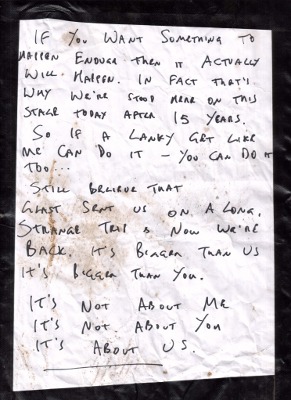 IF YOU WANT SOMETHING TO
HAPPEN ENOUGH THEN IT ACTUALLY
WILL HAPPEN. IN FACT THAT'S
WHY WE'RE STOOD HEAR ON THIS
STAGE TODAY AFTER 15 YEARS.
SO IF A LANKY GET LIKE
ME CAN DO IT - YOU CAN DO IT
TOO...
STILL BELIEVE THAT
GLAST SENT US ON A LONG,
STRANGE TRIP & NOW WE'RE
BACK. IT'S BIGGER THAN US
IT'S BIGGER THAN YOU.
IT'S NOT ABOUT ME
IT'S NOT ABOUT YOU
IT'S ABOUT US.